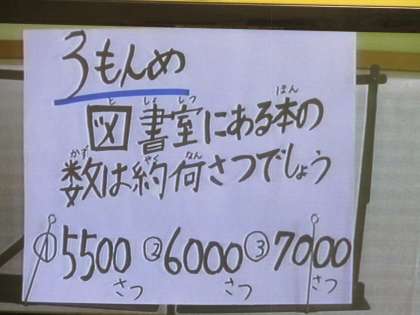 3もんめ
図書室にある本の
としょしつ ほん
数は約何さつでしょう
かず やくなん
①5500さつ ②6000さつ ③7000さつ